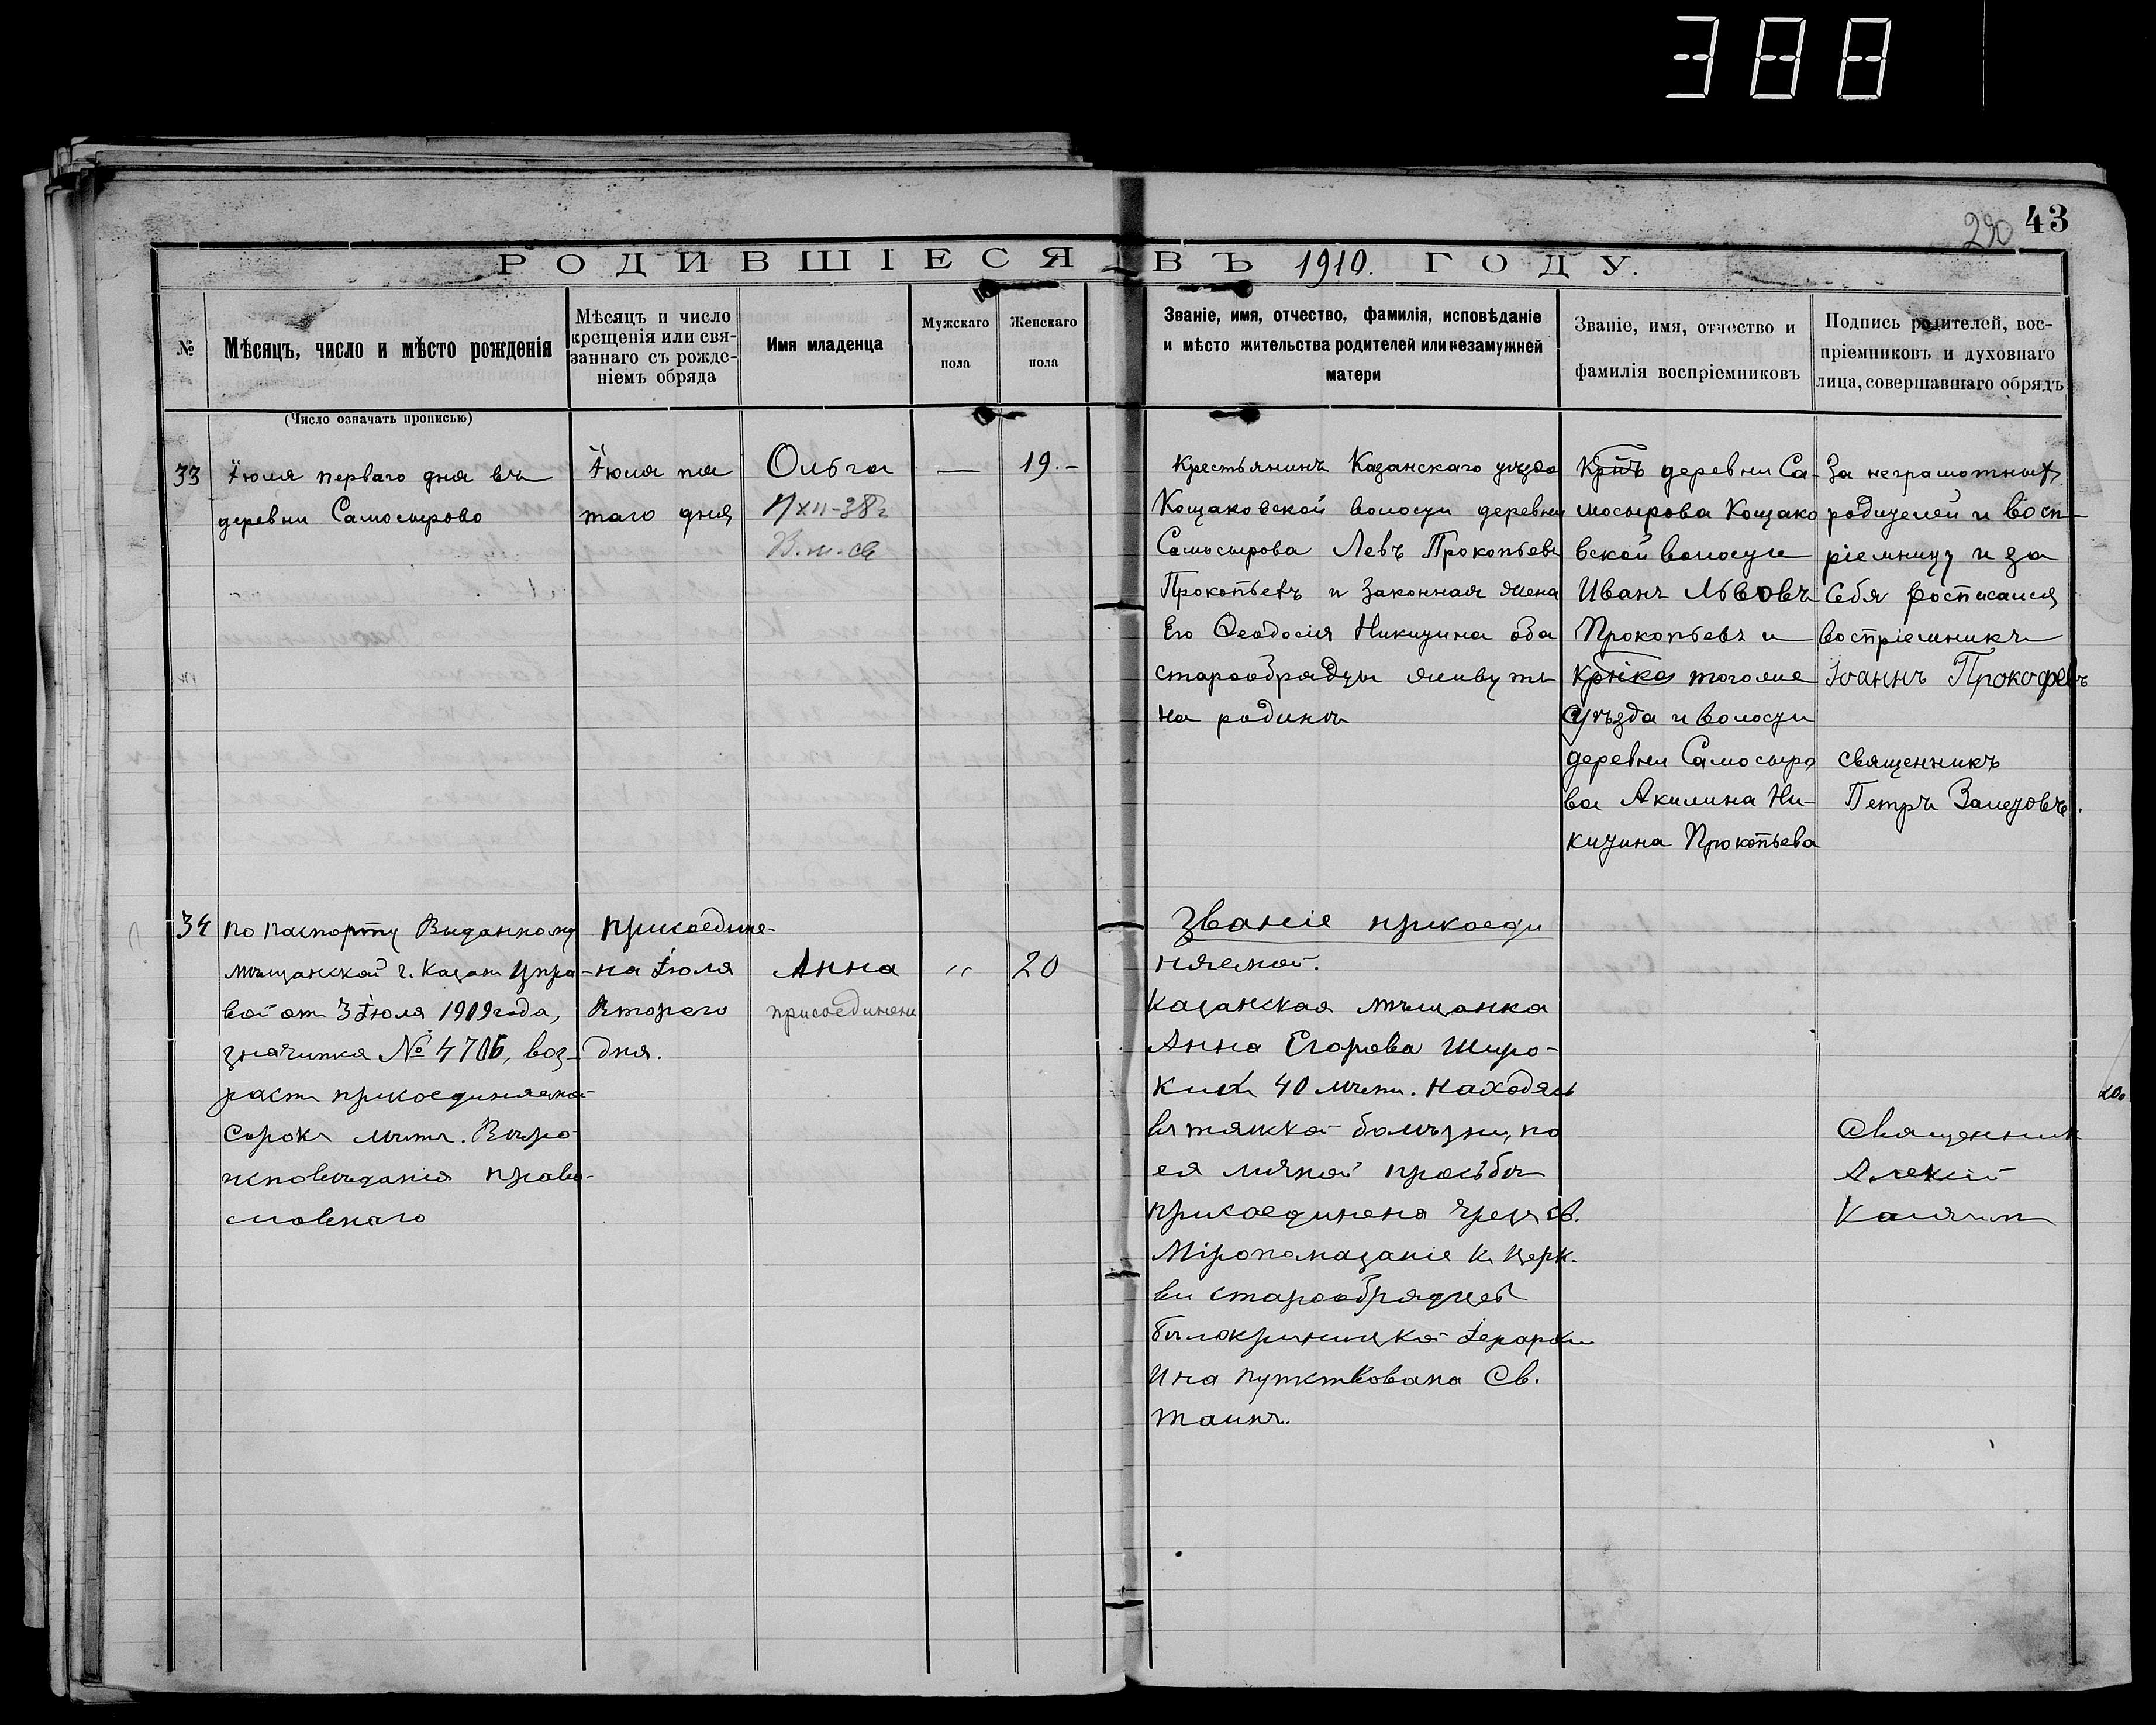 388
43
290
РОДИВШІЕСЯ ВЪ 1910. ГОДУ.
№
Мѣсяцъ, число и мѣсто рожденія
Мѣсяцъ и число
крещенія или свя-
заннаго съ рожде-
ніемъ обряда
Имя младенца
Мужскаго
пола
Женскаго
пола
Званіе, имя, отчество, фамилія, исповѣданіе
и мѣсто жительства родителей или незамужней
матери
Званіе, имя, отчество и
фамилія воспріемниковъ
Подпись родителей, вос-
пріемниковъ и духовнаго
лица, совершавшаго обрядъ
(Число означать прописью)
33
Іюля перваго дня въ
деревни Самосырово
Іюля пя
таго дня
Ольга
—
19.-
Крестьянинъ Казанскаго уѣзда
Кощаковской волости деревни
Самосырова Левъ Прокопьевъ
Прокопьевъ и законная жена
Его Ѳеодосія Никитина оба
старообрядцы живутъ
на родинѣ
Крнъ деревни Са-
мосырова Кощако
вской волости
Иванъ Львовъ
Прокопьевъ и
Крнка тогоже
уѣзда и волости
деревни Самосыро
ва Акилина Ни-
китина Прокопьева
За неграмотныхъ
родителей и восп-
ріемницу и за
Себя росписался
воспріемникъ
Іоаннъ Прокофевъ
священникъ
Петръ Залетовъ.
34
По паспорту Выданному
мѣщанской г. Казани Упра-
вой отъ 3 Іюля 1909 года,
значится № 4706, воз-
растъ присоединяемой
Сорокъ лѣтъ. Вѣро
исповѣданія право-
славнаго
присоедине-
на Іюля
Второго
дня.
Анна
присоединени
"
20
Званіе присоеди
няемой.
Казанская мѣщанка
Анна Егорова Широ-
кихъ 40 лѣтъ. Находясь
въ тяжкой болѣзни, по
ея личной просьбѣ
присоединена чрезъ св.
Мѵропомазаніе къ церк-
ви старообрядцевъ
бѣлокриницкой іерархіи
И на путствована Св.
таинъ.
Священникъ
Алексій
Калягинъ